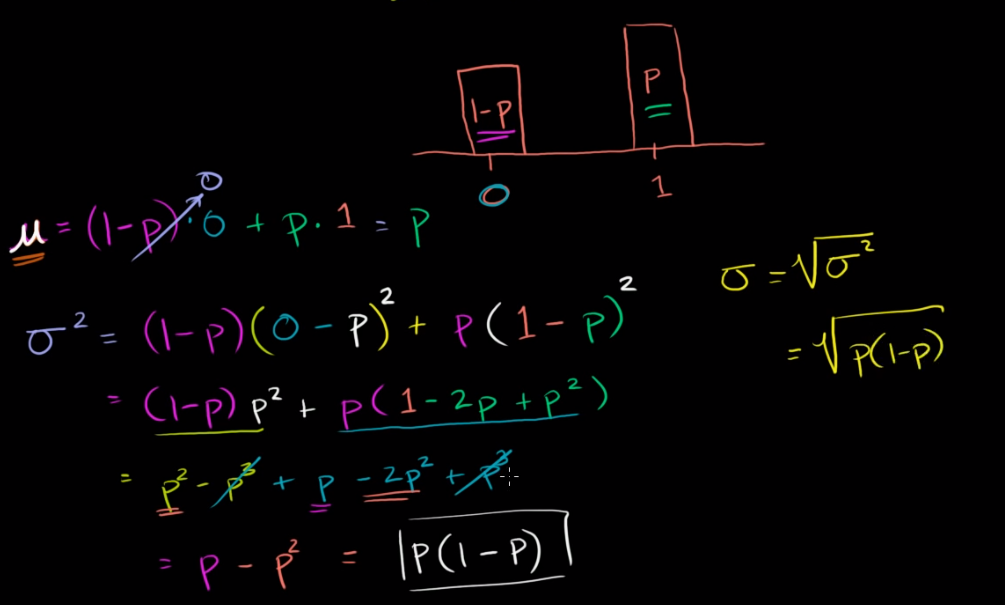 1-p
p
0
1
0
μ = (1-p)·0 + p·1 = p
σ² = (1-p)(0-p)² + p(1-p)²
σ = √σ²
= √p(1-p)
= (1-p)p² + p(1-2p+p²)
= p² - p³ + p - 2p² + p³
= p - p² = p(1-p)